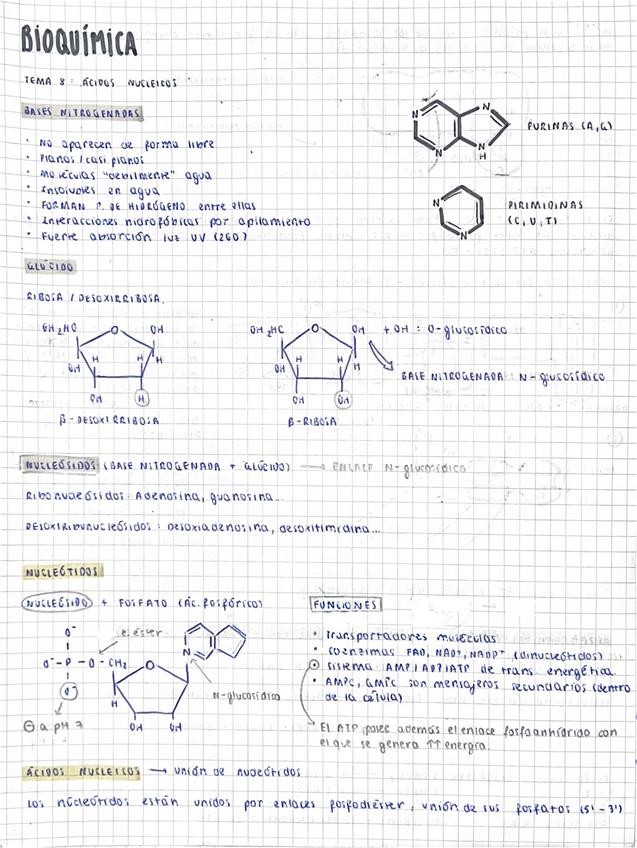 BIOQUÍMICA
TEMA 8: ÁCIDOS NUCLEICOS
BASES NITROGENADAS
• No aparecen de forma libre
• Planos / casi planos
• Moléculas "debilmente" agua
• Insolubles en agua
• FORMAN P. DE HIDRÓGENO entre ellas
• Interacciones hidrofóbicas por apilamiento
• Fuerte absorción luz UV (260)
N N N N H
PURINAS (A,G)
N N
PIRIMIDINAS
(C, U, T)
GLÚCIDO
RIBOSA / DESOXIRRIBOSA.
OH 2HC O OH
H H H
OH
OH H
β-DESOXIRRIBOSA
OH 2HC O OH
H H H
OH
OH OH
β-RIBOSA
+ OH : O-glucosídico
BASE NITROGENADA : N-glucosídico
NUCLEÓSIDOS (BASE NITROGENADA + GLÚCIDO) → ENLACE N-glucosídico
Ribonucleósidos: Adenosina, guanosina...
DESOXIRIBONUCLEÓSIDOS : Desoxiadenosina, desoxitimidina...
NUCLEÓTIDOS
NUCLEÓSIDO + FOSFATO (ÁC. fosfórico)
O⁻ e. éster
O⁻-P-O-CH₂ O N
O⁻ H
N-glucosídico
⊖ a pH 7
OH OH
FUNCIONES
• Transportadores moléculas
• Coenzimas FAD, NAD⁺, NADP⁺ (dinucleótidos)
• Sistema AMP/ADP/ATP de trans. energética
• AMPC, GMPC son mensajeros secundarios (dentro
de la célula)
El ATP posee además el enlace fosfoanhídrido con
el que se genera ↑↑ energía.
ÁCIDOS NUCLEICOS → unión de nucleótidos
Los nucleótidos están unidos por enlaces fosfodiéster, unión de sus fosfatos (5'-3')